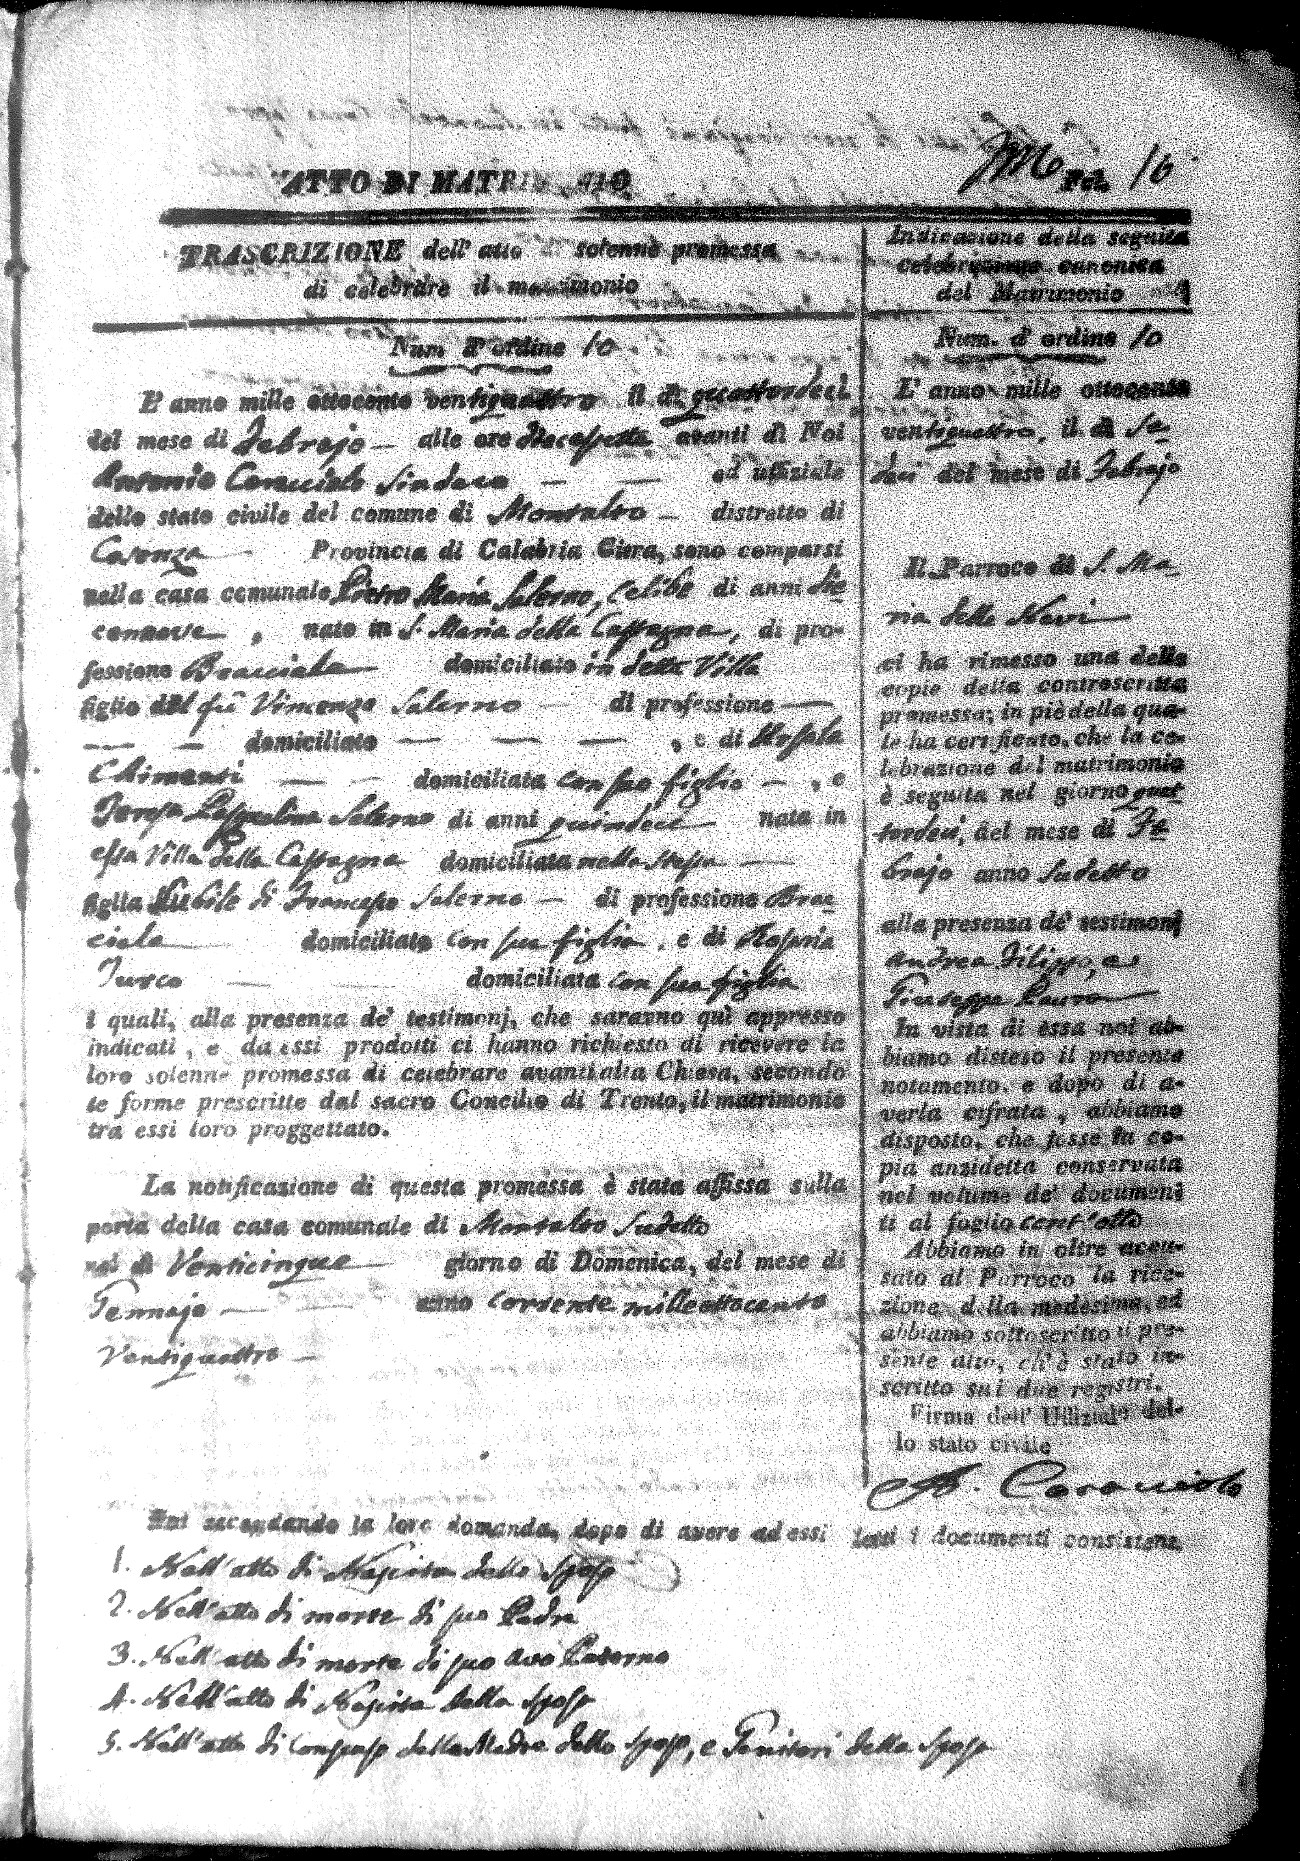 ATTO DI MATRIMONIO
Pol. 16
TRASCRIZIONE dell' atto solenne promessa
di celebrare il matrimonio
Num d'ordine 10
L' anno mille ottocento ventiquattro il di quattordeci
del mese di Febrajo — alle ore diecessette avanti di Noi
Antonio Caracciolo Sindaco — — ed uffiziale
dello stato civile del comune di Montalto — distretto di
Cosenza Provincia di Calabria Citra, sono comparsi
nella casa comunale Pietro Maria Salerno, Celibe di anni die=
cennove , nato in S. Maria della Castagna, di pro-
fessione Bracciale domiciliato in detta Villa
figlio del fù Vincenzo Salerno — di professione —
— — domiciliato — — — , e di Orsola
Chimenti — — domiciliata con suo figlio — , e
Teresa Pasqualina Salerno di anni quindeci nata in
essa Villa della Castagna domiciliata nella stessa —
figlia Nubile di Francesco Salerno — di professione Brac=
ciale domiciliato con sua figlia , e di Rosaria
Turco — domiciliata con sua figlia
i quali, alla presenza de' testimonj, che saranno quì appresso
indicati , e da essi prodotti ci hanno richiesto di ricevere la
loro solenne promessa di celebrare avanti alla Chiesa, secondo
le forme prescritte dal sacro Concilio di Trento, il matrimonio
tra essi loro proggettato.
La notificazione di questa promessa è stata affissa sulla
porta della casa comunale di Montalto Sudetto
nel di Venticinque giorno di Domenica, del mese di
Gennajo — — anno corrente milleottocento
Ventiquattro —
Indicazione della seguita
celebrazione canonica
del Matrimonio
Num. d' ordine 10
L' anno mille ottocento
ventiquattro, il dì Se=
deci del mese di Febrajo
Il Parroco di S. Ma=
ria delle Nevi
ci ha rimesso una delle
copie della controscritta
promessa; in piè della qua-
le ha certificato, che la ce-
lebrazione del matrimonio
è seguita nel giorno quat=
tordeci, del mese di Fe=
brajo anno Sudetto
alla presenza de' testimonj
Andrea Filippo, e
Giuseppe Lauro
In vista di essa noi ab-
biamo disteso il presente
notamento, e dopo di a-
verla cifrata , abbiamo
disposto, che fosse la co-
pia anzidetta conservata
nel volume de' documen-
ti al foglio cent'otto
Abbiamo in oltre accu-
sato al Parroco la rice-
zione della medesima, ed
abbiamo sottoscritto il pre-
sente atto, ch' è stato in-
scritto su i due registri.
Firma dell' Uffiziale del-
lo stato civile
A. Caracciolo
Noi secondando la loro domanda, dopo di avere ad essi letti i documenti consistenti
1. Nell'atto di Nascita dello sposo
2. Nell'atto di morte di suo Padre
3. Nell'atto di morte di suo avo Paterno
4. Nell'atto di Nascita della sposa
5. Nell'atto di Consenso della Madre dello sposo, e Genitori della sposa